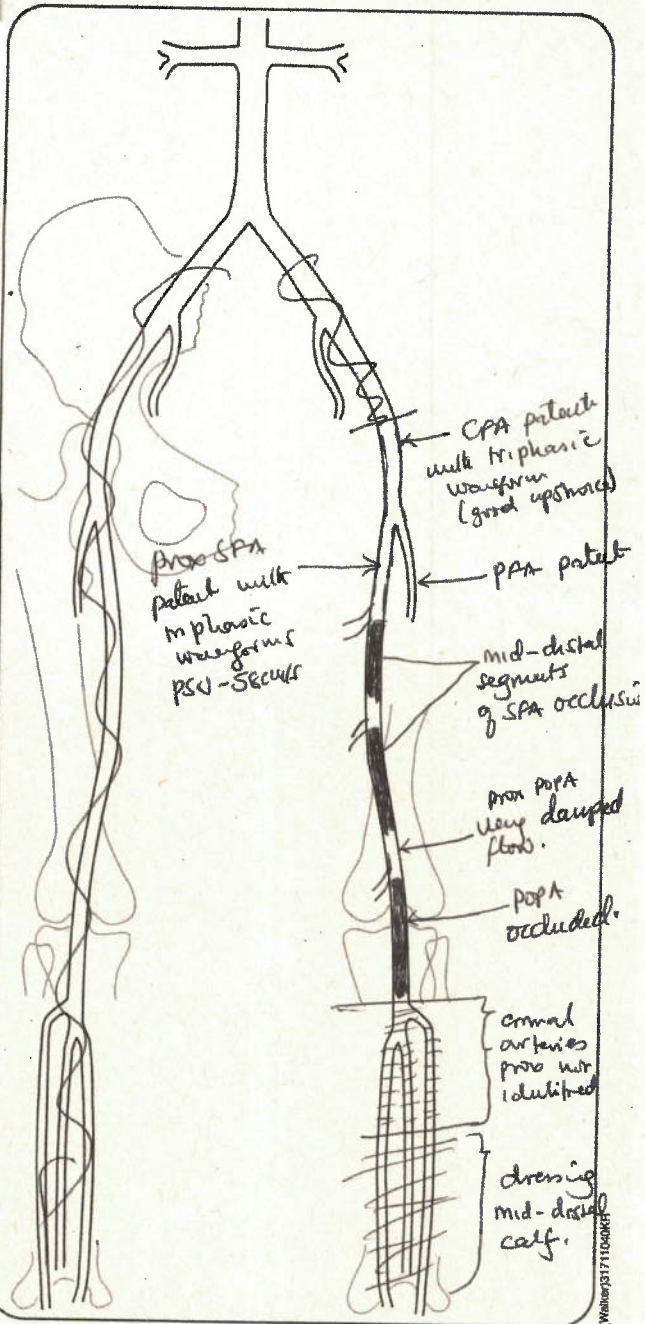 CFA patent
with triphasic
waveform
(good upstroke)
prox SFA
patent with
triphasic
waveforms
PSV-58cm/s
PFA patent
mid-distal
segments
of SFA occlusion
prox POPA
very damped
flow.
POPA
occluded.
crural
arteries
prox not
identified
dressing
mid-distal
calf.
(Walker)31711040KFP